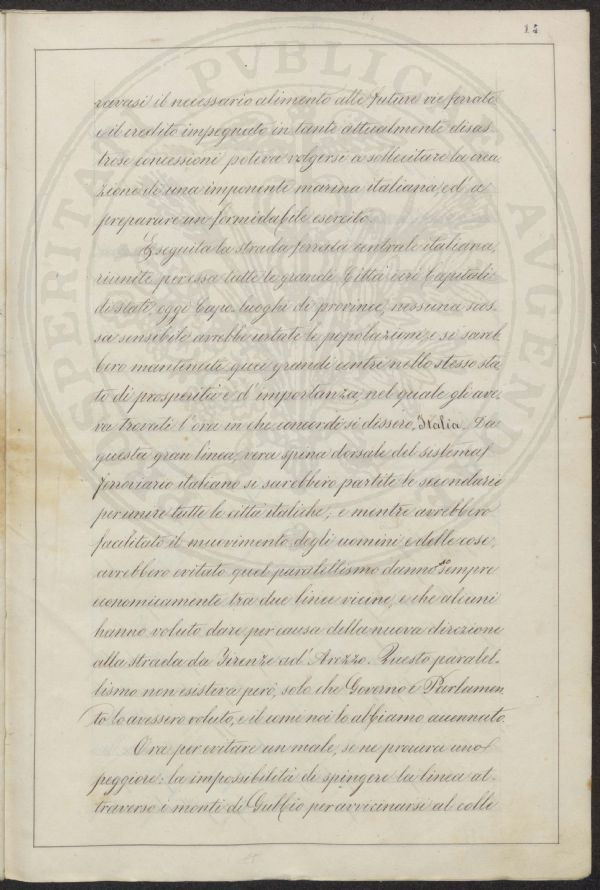 15
ravasi il necessario alimento alle future vie ferrate
e il credito impegnato in tante attualmente disas-
trose concessioni poteva volgersi a sollecitare la crea
zione di una imponente marina italiana, ed a
preparare un formidabile esercito.
Eseguita la strada ferrata centrale italiana,
riunite per essa tutte le grandi Città ieri Capitali
di stati, oggi Capo-luoghi di province, nessuna scos-
sa sensibile avrebbe urtate le popolazioni, e si sareb-
bero mantenute quei grandi centri nello stesso sta
to di prosperità e d'importanza, nel quale gli ave
va trovati l'ora in che concordi si dissero, Italia. Da
questa gran linea, vera spina dorsale del sistema
ferroviario italiano si sarebbero partite le secondarie
per unire tutte le città italiche; e mentre avrebbero
facilitato il muovimento degli uomini e delle cose,
avrebbero evitato quel parallelismo dannoso sempre
economicamente tra due linee vicine, e che alcuni
hanno voluto dare per causa della nuova direzione
alla strada da Firenze ad Arezzo. Questo paralel-
lismo non esisteva però, solo che Governo e Parlamen
to lo avessero voluto, e il come noi lo abbiamo accennato.
Ora per evitare un male, se ne procura uno
peggiore: la impossibilità di spingere la linea at-
traverso i monti di Gubbio per avvicinarsi al colle
SPERITAS PVBLICA AVGENDA